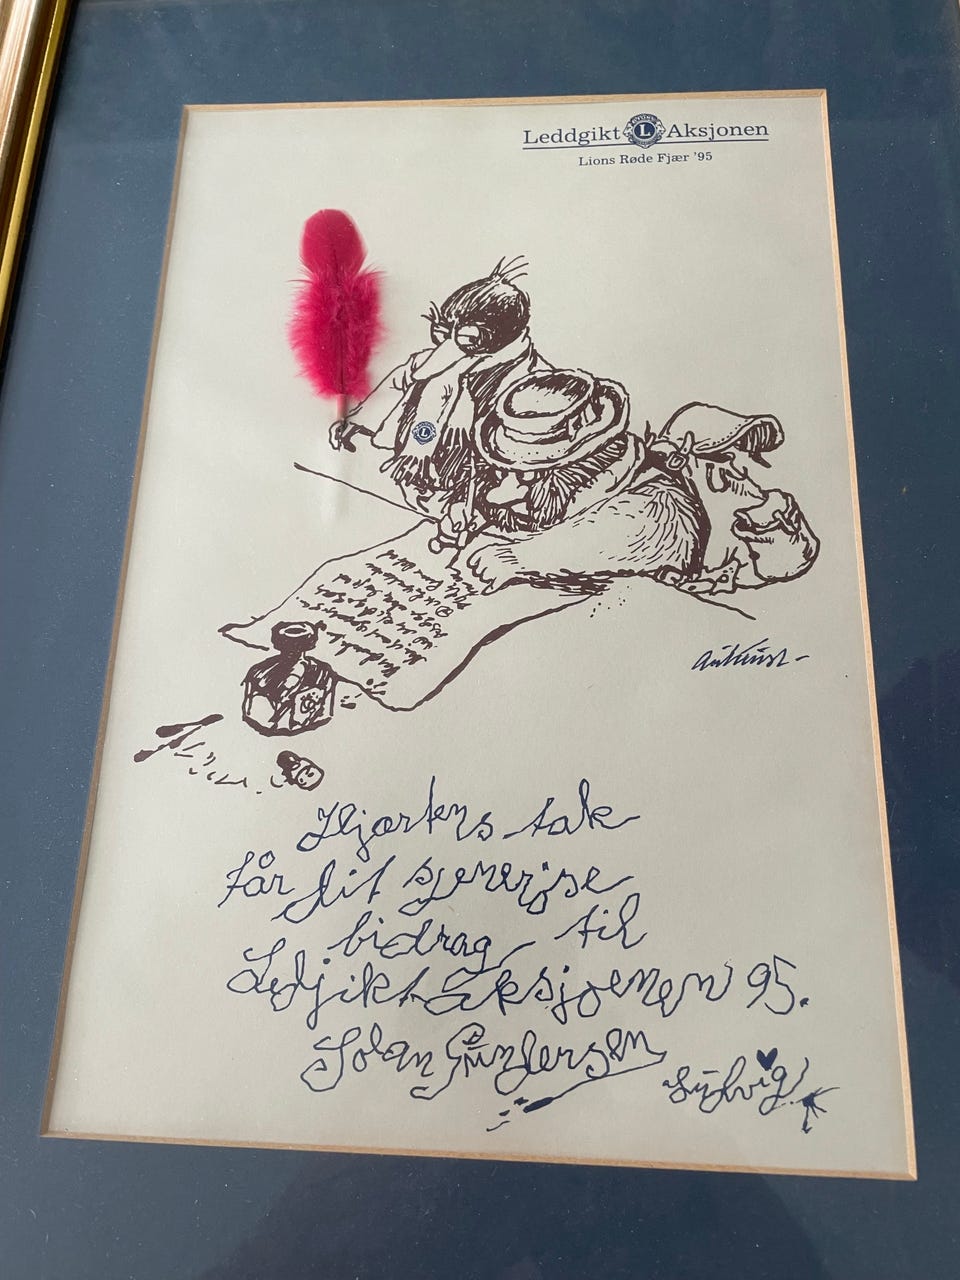 Leddgikt L Aksjonen
Lions Røde Fjær '95
L
Aukrust
Hjærtens tak
får dit sjenerøse
bidrag til
Ledjikt Aksjoenen 95.
Solan Gundersen
Ludvig